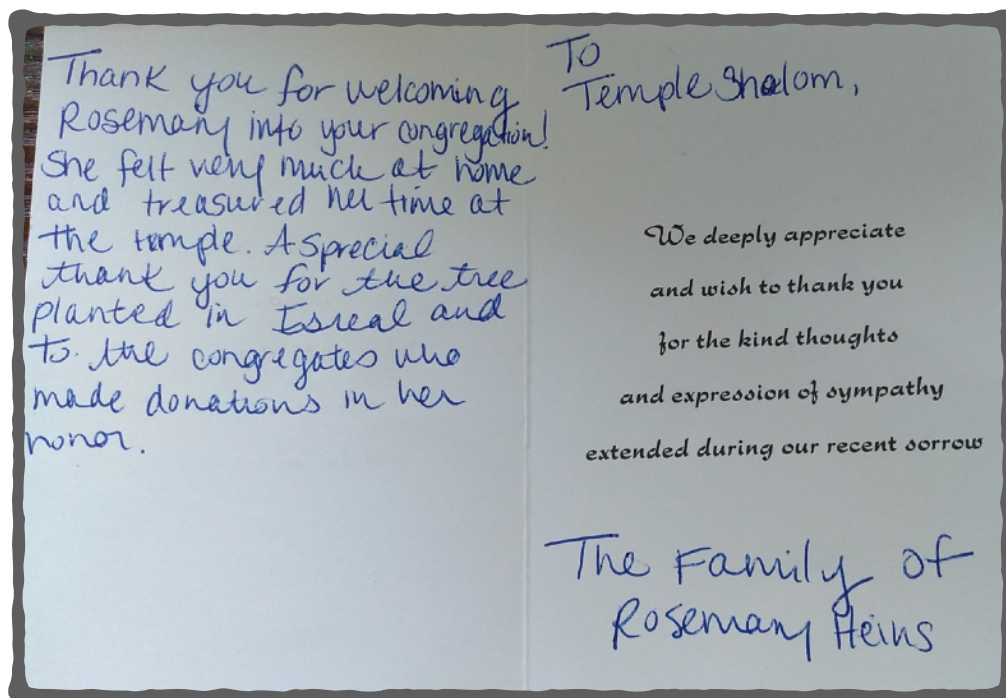 Thank you for welcoming
Rosemary into your congregation!
She felt very much at home
and treasured her time at
the temple. A Sprecial
thank you for the tree
planted in Isreal and
to the congregates who
made donations in her
honor.
To
Temple Shalom,
We deeply appreciate
and wish to thank you
for the kind thoughts
and expression of sympathy
extended during our recent sorrow
The Family of
Rosemary Heins